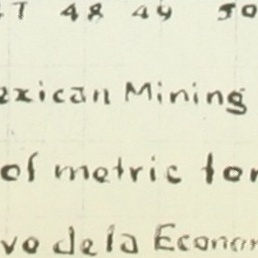 48 49 50
exican Mining
of metric ton
vo de la Econom